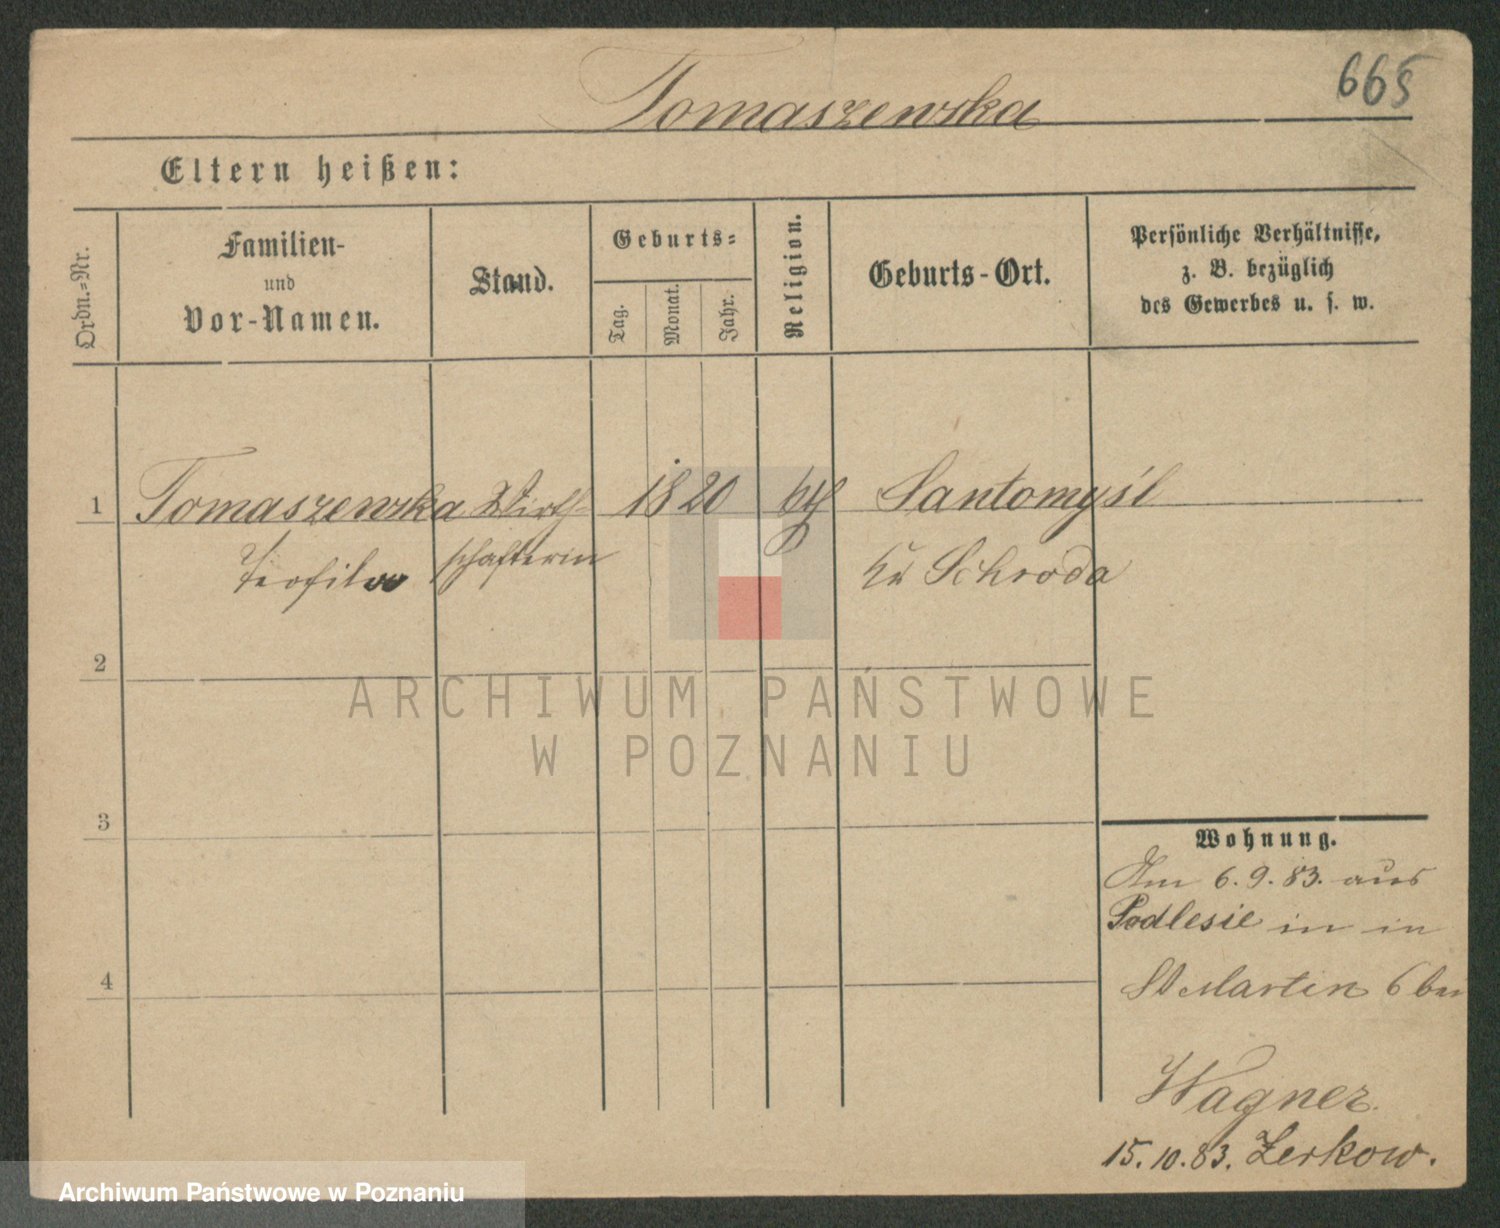 665
Tomaszewska
Eltern heißen:
Ordn.-Nr.
Familien-
und
Vor-Namen.
Stand.
Geburts-
Tag.
Monat.
Jahr.
Religion.
Geburts-Ort.
Persönliche Verhältnisse,
z. B. bezüglich
des Gewerbes u. s. w.
1 Tomaszewska Wirth- 1820 Santomyśl
Teofila schafterin Kr Schroda
2
3
4
Wohnung.
Am 6.9.83. aus
Podlesie in in
St Martin 6 bei
Wagner.
15.10.83. Zerkow.
ARCHIWUM PAŃSTWOWE
W POZNANIU
Archiwum Państwowe w Poznaniu